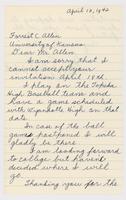 April 10, 1942
Forrest C Allen
University of Kansas
Dear Mr. Allen
I am sorry that I
cannot accept your
invitation April 18th
I play on the Topeka
High Baseball Team and
have a game scheduled
with Wyandotte High on that
date.
In case of the ball
game postponed I will
gladly be there
I am looking forward
to college but haven't
decided where I will
go.
Thanking you for the